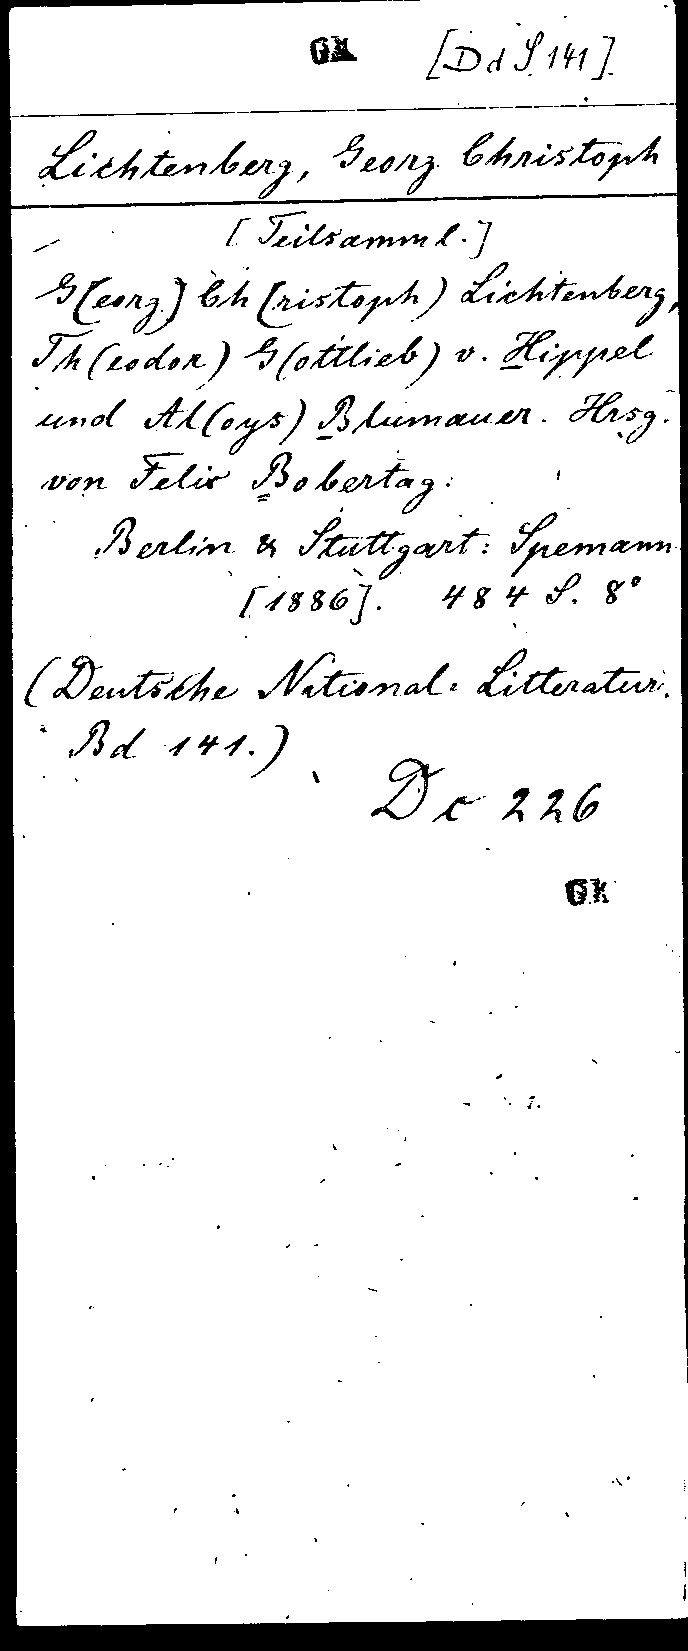 GK [Dd S 141].
Lichtenberg, Georg Christoph
[Teilsamml.]
G(eorg) Ch(ristoph) Lichtenberg,
Th(eodor) G(ottlieb) v. Hippel
und Al(oys) Blumauer. Hrsg.
von Felix Bobertag.
Berlin & Stuttgart: Spemann
[1886]. 484 S. 8°
(Deutsche National-Litteratur.
Bd 141.)
Dc 226
GK